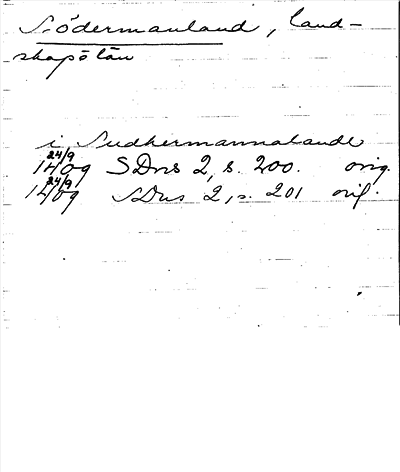 Södermanland, land-
skapslän
i Sudhermannalande
24/9
1409 SDns 2, s. 200. orig.
24/9
1409 SDns 2, s. 201 orig.